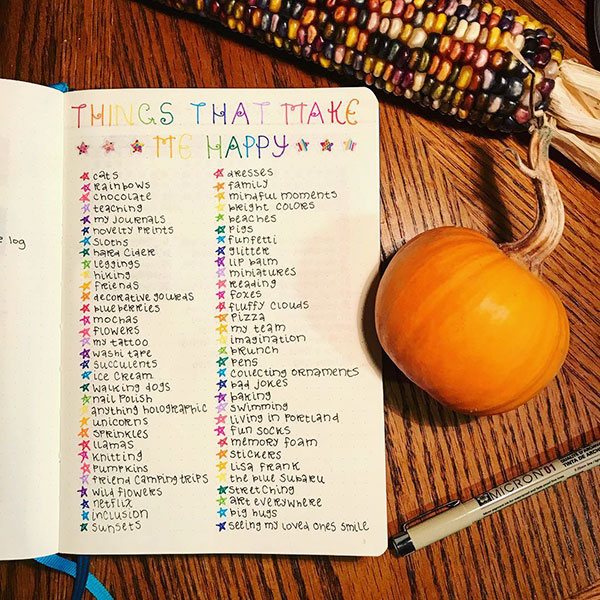 THINGS THAT MAKE
ME HAPPY
cats
rainbows
chocolate
teaching
my journals
novelty prints
sloths
hard cider
leggings
hiking
friends
decorative gourds
blueberries
mochas
flowers
my tattoo
washi tape
succulents
ice cream
walking dogs
nail polish
anything holographic
unicorns
sprinkles
llamas
knitting
pumpkins
friend camping trips
wild flowers
netflix
inclusion
sunsets
dresses
family
mindful moments
bright colors
beaches
pigs
funfetti
glitter
lip balm
miniatures
reading
foxes
fluffy clouds
pizza
my team
imagination
brunch
pens
collecting ornaments
bad jokes
baking
swimming
living in portland
fun socks
memory foam
stickers
lisa frank
the blue subaru
stretching
art everywhere
big hugs
seeing my loved ones smile
e log
MICRON 01